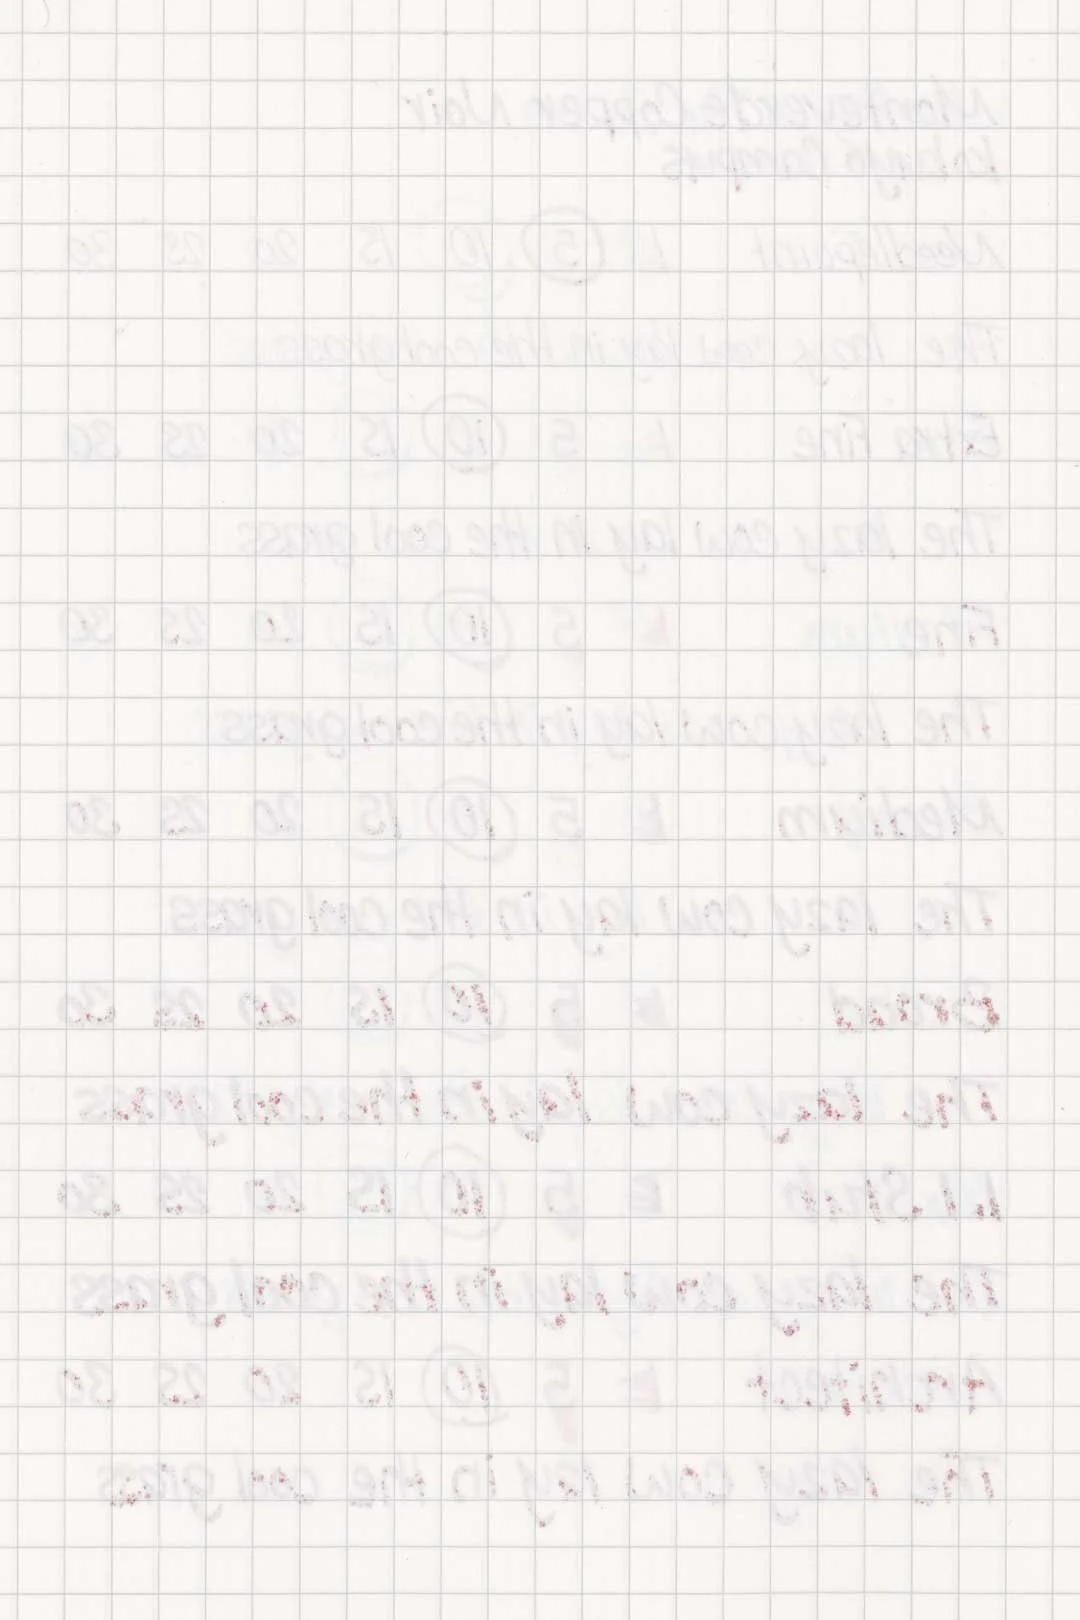 Monteverde Copper Noir
Kokuyo Campus
Needlepoint E 5 10 15 20 25 30
The lazy cow lay in the cool grass
Extra Fine E 5 10 15 20 25 30
The lazy cow lay in the cool grass
Fine E 5 10 15 20 25 30
The lazy cow lay in the cool grass
Medium E 5 10 15 20 25 30
The lazy cow lay in the cool grass
Broad E 5 10 15 20 25 30
The lazy cow lay in the cool grass
1.1 Stub E 5 10 15 20 25 30
The lazy cow lay in the cool grass
Architect E 5 10 15 20 25 30
The lazy cow lay in the cool grass